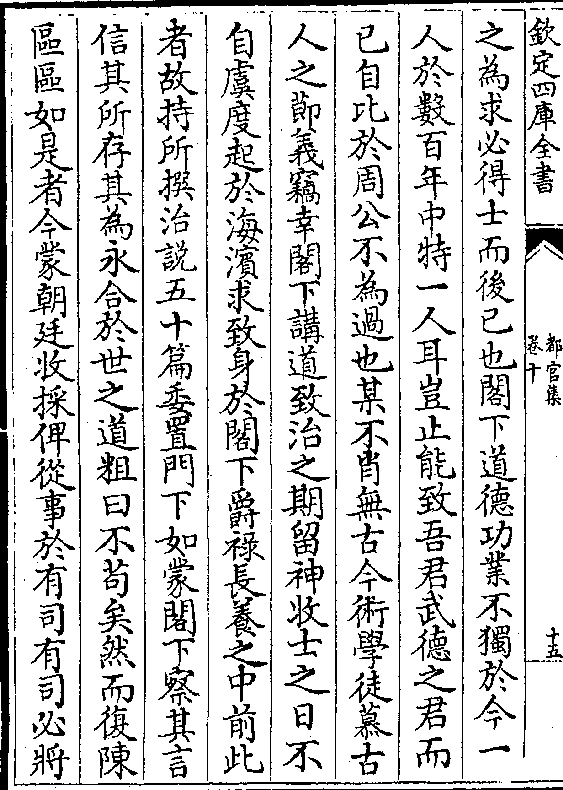 欽定四庫全書
都官集
卷十
十五
之為求必得士而後已也閣下道德功業不獨於今一
人於數百年中特一人耳豈止能致吾君武德之君而
已自比於周公不為過也某不肖無古今術學徒慕古
人之節義竊幸閣下講道致治之期留神收士之日不
自虞度起於海濱求致身於閣下爵祿長養之中前此
者故持所撰治說五十篇委置門下如蒙閣下察其言
信其所存其為永合於世之道粗曰不苟矣然而復陳
區區如是者今蒙朝廷收採俾從事於有司有司必將